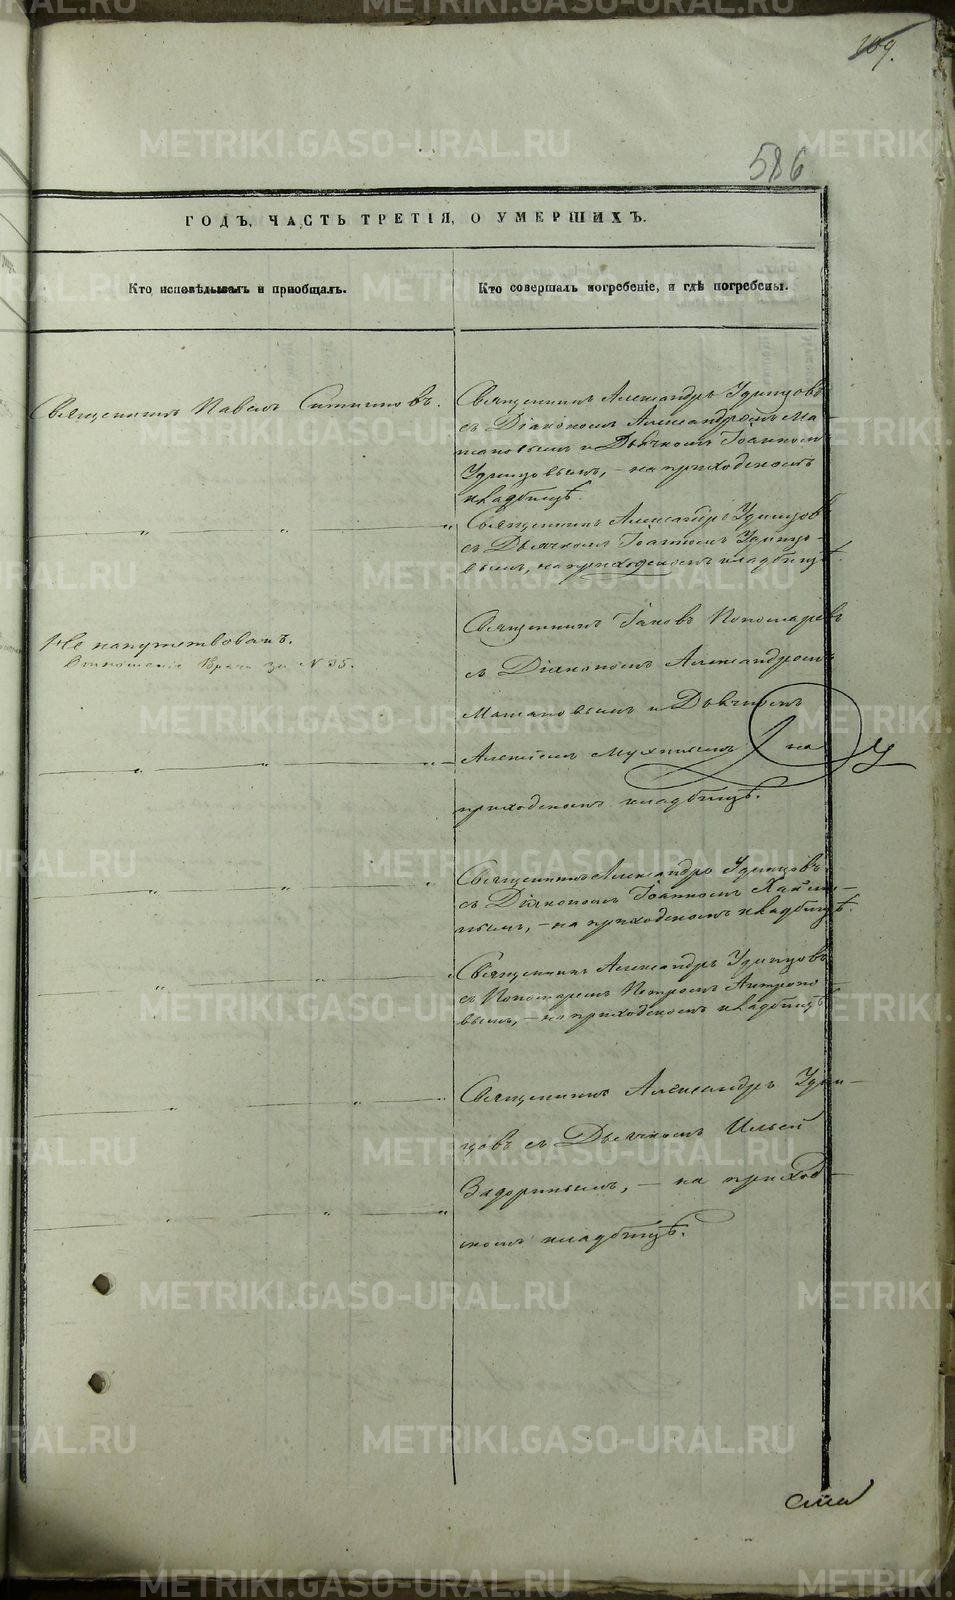 109.
586
ГОДЪ, ЧАСТЬ ТРЕТІЯ, О УМЕРШИХЪ.
Кто исповѣдывалъ и пріобщалъ.
Кто совершалъ погребеніе, и гдѣ погребены.
Священникъ Павелъ
Священникъ Александръ Удинцовъ
съ Діакономъ Александромъ Ма-
и Дьячкомъ Іоанномъ
Удинцовымъ, – на приходскомъ
кладбищѣ.
Священникъ Александръ Удинцовъ
съ Дьячкомъ Іоанномъ Удинцо-
вымъ, на приходскомъ кладбищѣ.
Не напутствованъ.
Отношеніе Врача за №
Священникъ Іаковъ Пономаревъ
съ Діакономъ Александромъ
и Дьячкомъ
Алексѣемъ Мухинымъ на
приходскомъ кладбищѣ.
Священникъ Александръ Удинцовъ
съ Діакономъ Іоанномъ
нымъ, – на приходскомъ кладбищѣ.
Священникъ Александръ Удинцовъ
съ Пономаремъ Петромъ
вымъ, – на приходскомъ кладбищѣ
Священникъ Александръ Удин-
цовъ съ Дьячкомъ Ильей
Задоринымъ, – на приход-
скомъ кладбищѣ.
METRIKI.GASO-URAL.RU